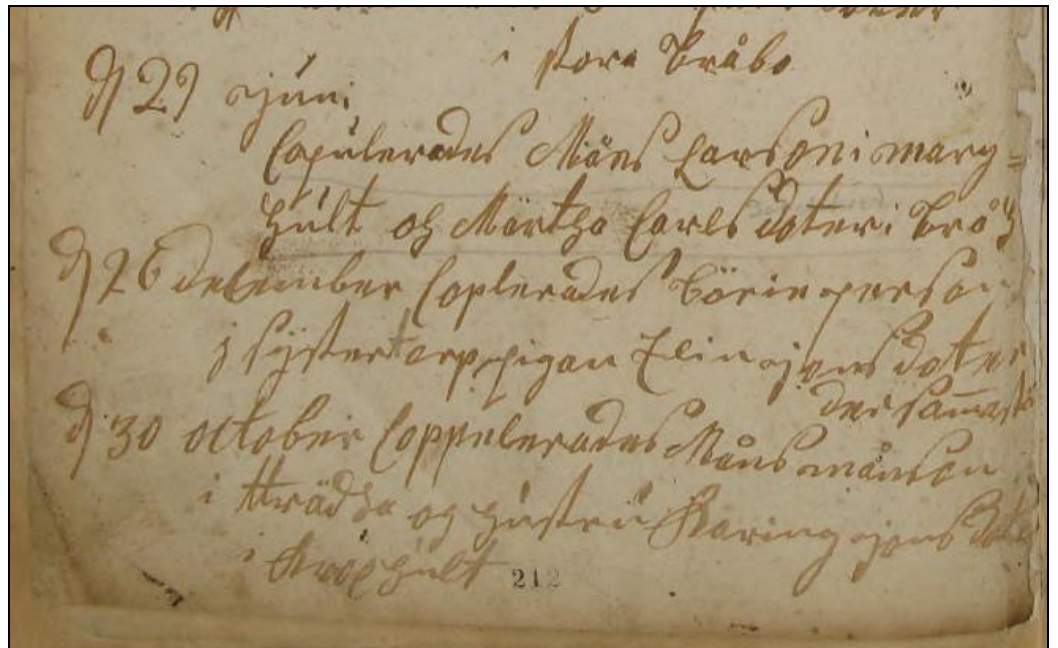 i stora bråbo
d 29 juni
Copulerades Måns Larson i marg=
hult oh Märtha Carls doter i brå
d 26 desember Coplerades börie person
j systertorp pigan Elin jons doter
der samast
d 30 october Coppulerades Måns månson
i tträdda og hustru Karing jons dot
i Krophult
212